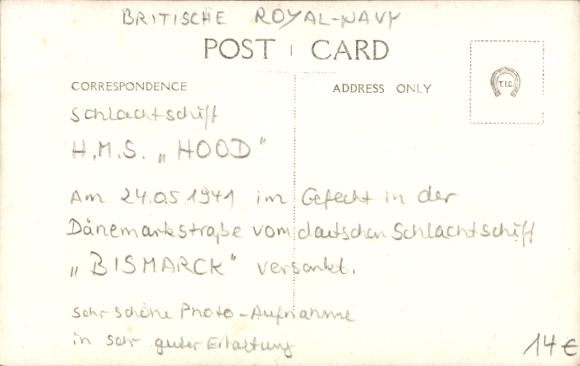 BRITISCHE ROYAL-NAVY
POST CARD
CORRESPONDENCE
ADDRESS ONLY
T.I.C
Schlachtschiff
H.M.S. „HOOD"
Am 24.05.1941 im Gefecht in der
Dänemarkstraße vom deutschen Schlachtschiff
„BISMARCK" versenkt.
sehr schöne Photo-Aufnahme
in sehr guter Erhaltung
14€